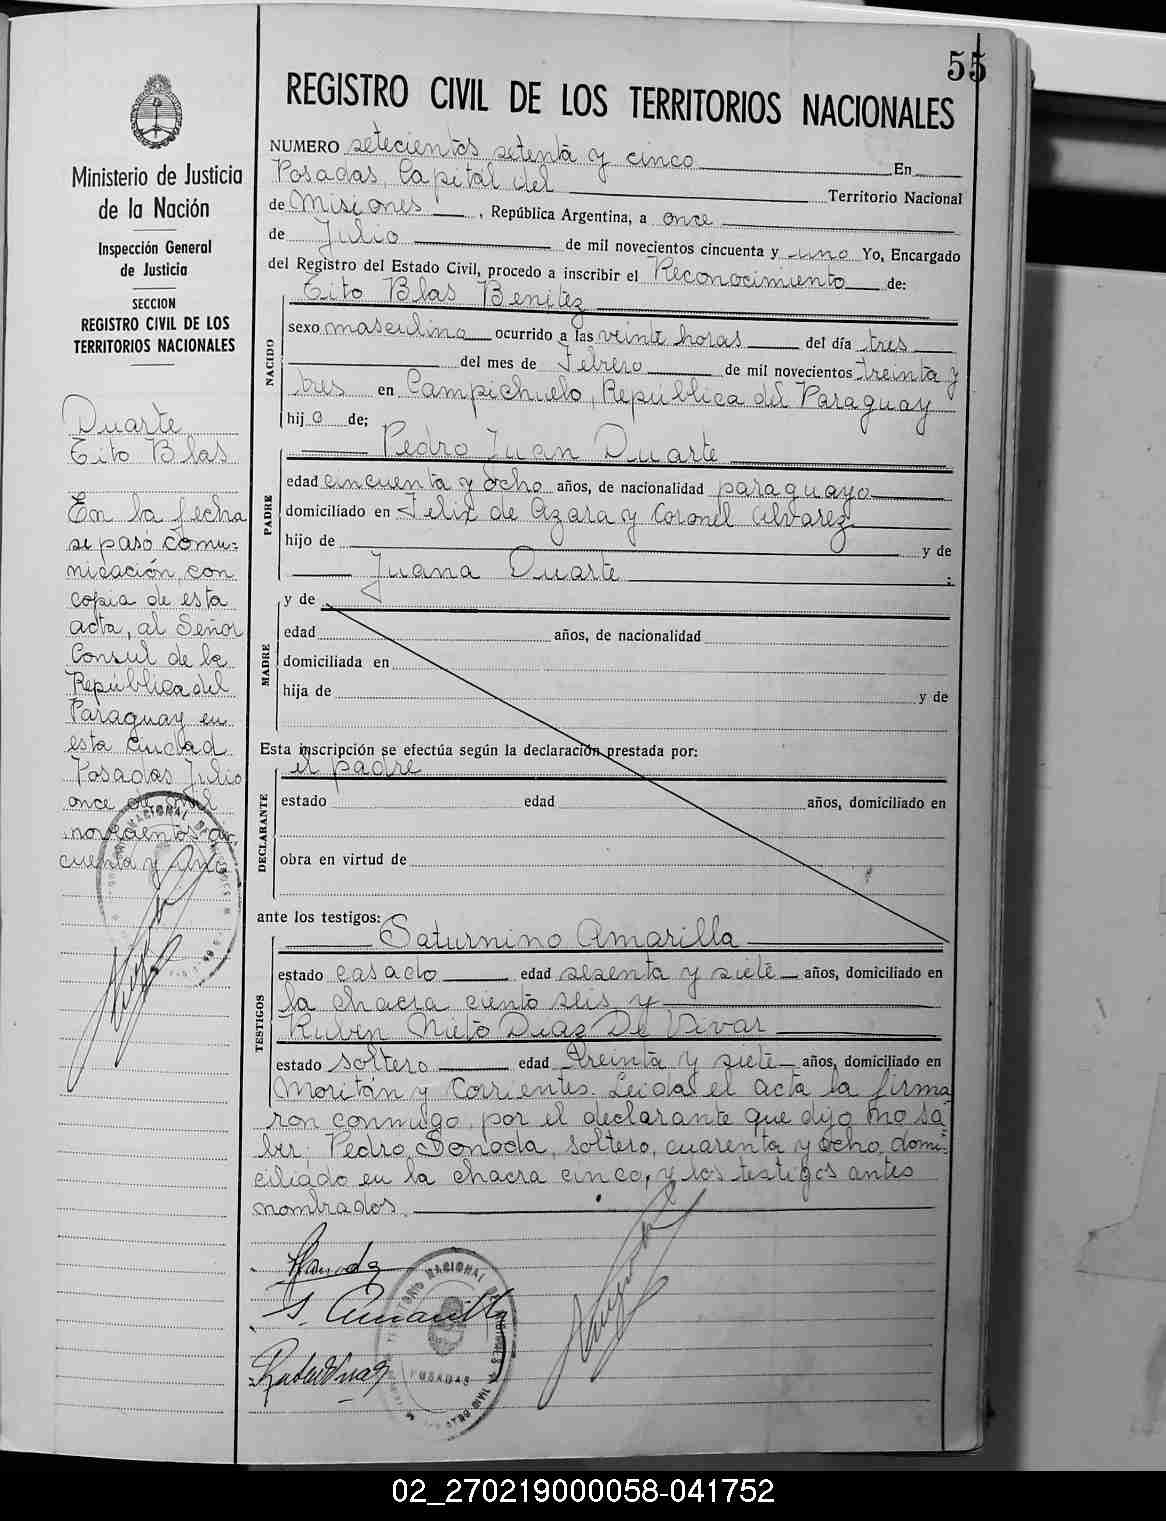 55
REGISTRO CIVIL DE LOS TERRITORIOS NACIONALES
Ministerio de Justicia
de la Nación
Inspección General
de Justicia
SECCION
REGISTRO CIVIL DE LOS
TERRITORIOS NACIONALES
Duarte
Tito Blas
En la fecha
se pasó comu-
nicación con
copia de esta
acta, al Señor
Consul de la
República del
Paraguay en
esta ciudad
Posadas Julio
once de mil
novecientos cin
cuenta y uno
NUMERO setecientos setenta y cinco En
Posadas, Capital del Territorio Nacional
de Misiones, República Argentina, a once
de Julio de mil novecientos cincuenta y uno Yo, Encargado
del Registro del Estado Civil, procedo a inscribir el Reconocimiento de:
Tito Blas Benitez
NACIDO
sexo masculino ocurrido a las veinte horas del día tres
del mes de Febrero de mil novecientos treinta y
tres en Campichuelo, República del Paraguay
hijo de;
Pedro Juan Duarte
PADRE
edad cincuenta y ocho años, de nacionalidad paraguayo
domiciliado en Felix de Azara y Coronel Alvarez
hijo de y de
Juana Duarte;
y de
MADRE
edad años, de nacionalidad
domiciliada en
hija de y de
Esta inscripción se efectúa según la declaración prestada por:
el padre
DECLARANTE
estado edad años, domiciliado en
obra en virtud de
ante los testigos:
Saturnino Amarilla
TESTIGOS
estado casado edad sesenta y siete años, domiciliado en
la chacra ciento seis y
Ruben Nieto Diaz De Vivar
estado soltero edad treinta y siete años, domiciliado en
Moritán y Corrientes. Leida el acta la firma
ron conmigo, por el declarante que dijo no sa-
ber, Pedro, soltero, cuarenta y ocho, domi-
ciliado en la chacra cinco, y los testigos antes
nombrados.
S. Amarilla
POSADAS
02_270219000058-041752